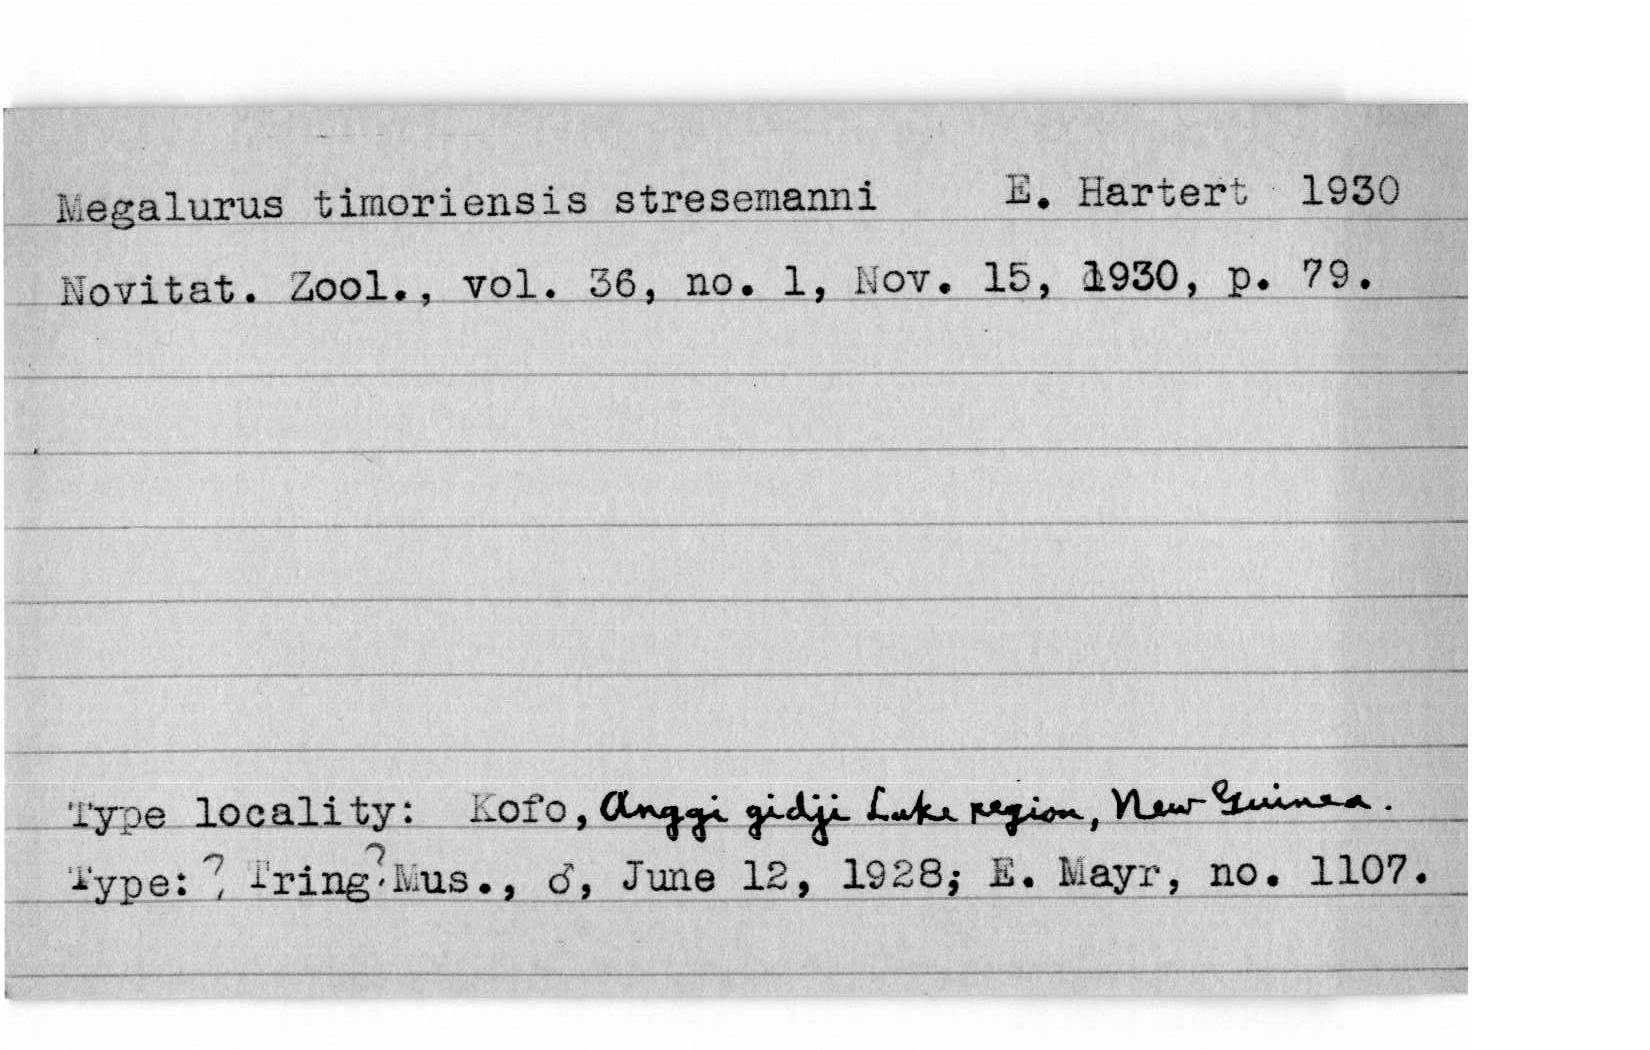 Megalurus timoriensis stresemanni E. Hartert 1930
Novitat. Zool., vol. 36, no. 1, Nov. 15, 1930, p. 79.
Type locality: Kofo, Anggi gidji Lake region, New Guinea.
Type: ? Tring? Mus., ♂, June 12, 1928; E. Mayr, no. 1107.